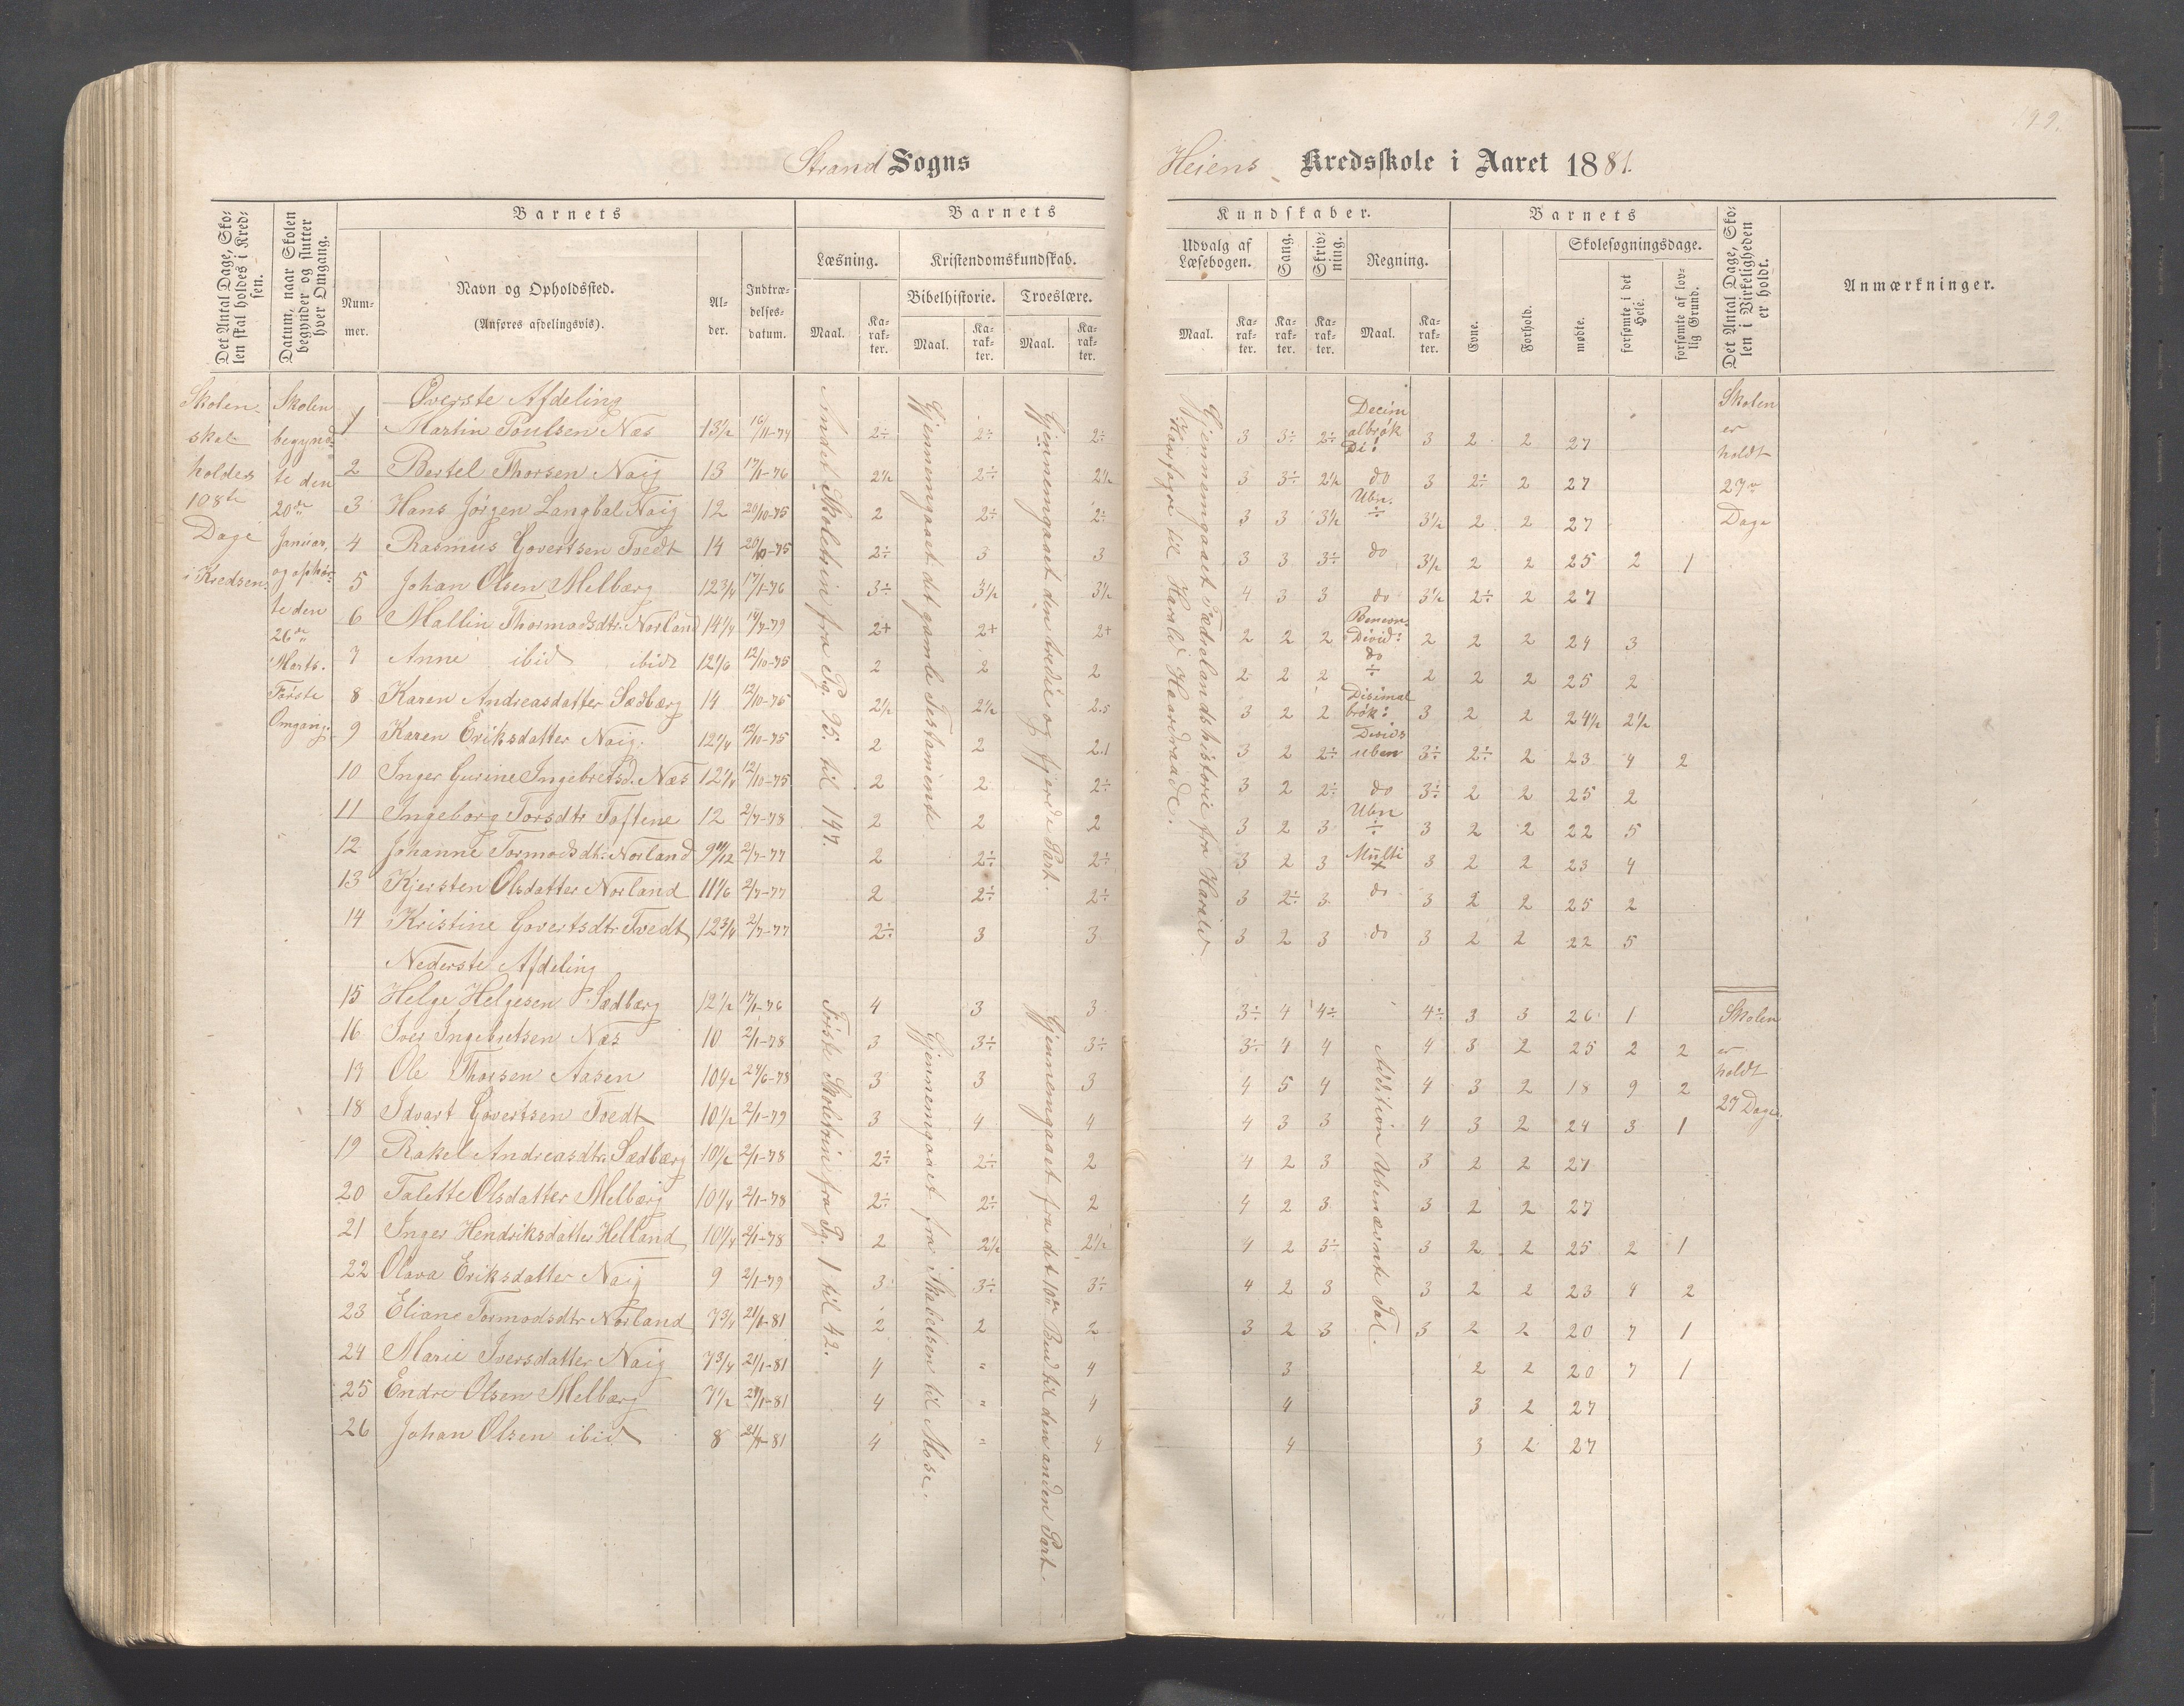 Strand Sogns
Heiens Kredsskole i Aaret 1881.
199.
Det Antal Dage, Skolen skal holdes i Kredsen.
Datum, naar Skolen begynder og slutter hver Omgang.
Barnets
Nummer.
Navn og Opholdssted.
(Anføres afdelingsvis).
Alder.
Indtrædelsesdatum.
Barnets
Læsning.
Maal.
Karakter.
Kristendomskundskab.
Bibelhistorie.
Maal.
Karakter.
Troeslære.
Maal.
Karakter.
Kundskaber.
Udvalg af Læsebogen.
Maal.
Karakter.
Sang.
Karakter.
Skrivning.
Karakter.
Regning.
Maal.
Karakter.
Barnets
Evne.
Forhold.
Skolesøgningsdage.
mødte.
forsømte i det Hele.
forsømte af lovlig Grund.
Det Antal Dage, Skolen i Virkeligheden er holdt.
Anmærkninger.
Skolen skal holdes 108te Dage i Kredsen.
Skolen begyndte den 20de Januar, og ophørte den 26de Marts. Første Omgang.
Andet Skoletrin fra Pg. 95. til 147.
Gjennemgaaet det gamle Testamente
Gjennemgaaet den tredie og fjerde Part.
Gjennemgaaet Fædrelandshistorie fra Harald Haarfagre til Harald Haardraade.
Øverste Afdeling
1 Martin Poulsen Næs 13½ 16/11-74 2÷ 2÷ 2÷ 3 3÷ 2÷ Decimalbrøk Di: 3 2 2 27
2 Bertel Thorsen Naig 13 17/1-76 2½ 2÷ 2½ 3 3÷ 2½ do 3 2÷ 2 27
3 Hans Jørgen Langbal Naig 12 20/10-75 2 2÷ 2÷ 3 3 3½ Ubn. ÷ 3½ 2 2 27
4 Rasmus Govertsen Tvedt 14 20/10-75 2÷ 3 3 3 3 3÷ do 3½ 2 2 25 2 1
5 Johan Olsen Melbærg 12¾ 17/1-76 3÷ 3½ 3½ 4 3 3 do 3½ 2÷ 2 27
6 Mallin Thormodsdtr. Norland 14¼ 14/7-79 2+ 2+ 2+ 2 2 2 Benævn. Divid: 2 2 2 24 3
7 Anne ibid ibid 12 1/6 12/10-75 2 2 2 2 2 2 do ÷ 2 2 2 25 2
8 Karen Andreasdatter Sædbærg 14 12/10-76 2½ 2½ 2.5 3 2 2 Disimalbrøk: 3 2 2 24½ 2½
9 Karen Eriksdatter Naig. 12¼ 12/10-75 2 2 2.1 3 2 2÷ Divids uben 3÷ 2÷ 2 23 4 2
10 Inger Gurine Ingebretsd. Næs 12¼ 12/10-75 2 2 2÷ 3 2 2÷ do 3÷ 2 2 25 2
11 Ingeborg Torsdtr Toftene 12 2/7-78 2 2 2 3 2 3 Ubn ÷ 3 2 2 22 5
12 Johanne Tormodsdtr. Norland 9 11/12 2/7-77 2 2÷ 2÷ 3 2 3 Multi × 3 2 2 23 4
13 Kjersten Olsdatter Norland 11 1/6 2/7-77 2 2÷ 2÷ 3 2÷ 3 do 3 2 2 25 2
14 Kristine Govertsdtr Tvedt 12¾ 2/7-77 2÷ 3 3 3 2 3 do 3 2 2 22 5
Skolen er holdt 27 Dage
Nederste Afdeling
Første Skoletrin fra Pg. 1 til 42.
Gjennemgaaet fra Skabelsen til Mose.
Gjennemgaaet fra det 10de Bud til den anden Part.
Addition Ubenævnte Tal.
15 Helge Helgesen Sædbærg 12½ 17/1-76 4 3 3 3÷ 4 4÷ 4÷ 3 3 26 1
16 Iver Ingebretsen Næs 10 2/1-78 3 3÷ 3÷ 3÷ 4 4 4 3 2 25 2 2
17 Ole Thorsen Aasen 10½ 24/6-78 3 3 3 4 5 4 4 3 2 18 9 2
18 Edvart Govertsen Tvedt 10½ 2/1-79 3 4 4 4 3 3 4 3 2 24 3 1
19 Rakel Andreasdtr. Sædbærg 10½ 2/1-78 2÷ 2÷ 2 4 2 3 3 2 2 27
20 Talette Olsdatter Melbærg 10¼ 2/1-78 2÷ 2÷ 2 4 2 3 3 2 2 27
21 Inger Hendriksdatter Helland 10¼ 2/1-78 2 2½ 2½ 4 2 3÷ 3 2 2 25 2 1
22 Olava Eriksdatter Naig 9 2/1-79 3 3÷ 3÷ 4 2 3 3 2 2 23 4 2
23 Eliane Tormodsdtr Norland 7¾ 21/1-81 2 2 2 3 2 3 3 2 2 20 7 1
24 Marie Iversdatter Naig 7¾ 21/1-81 4 " 4 3 2 2 20 7 1
25 Endre Olsen Melbærg 7½ 21/1-81 4 " 4 4 3 2 27
26 Johan Olsen ibid 8 21/1-81 4 " 4 4 3 2 27
Skolen er holdt 27 Dage.